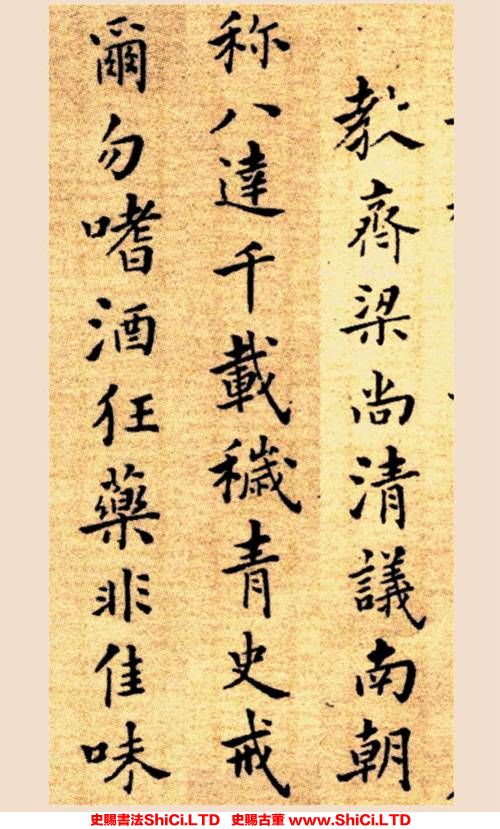 教齊梁尚清議南朝
称八達千載穢青史戒
爾勿嗜酒狂藥非佳味
史賜書法ShiCi.LTD 史賜古董 www.ShiCi.LTD